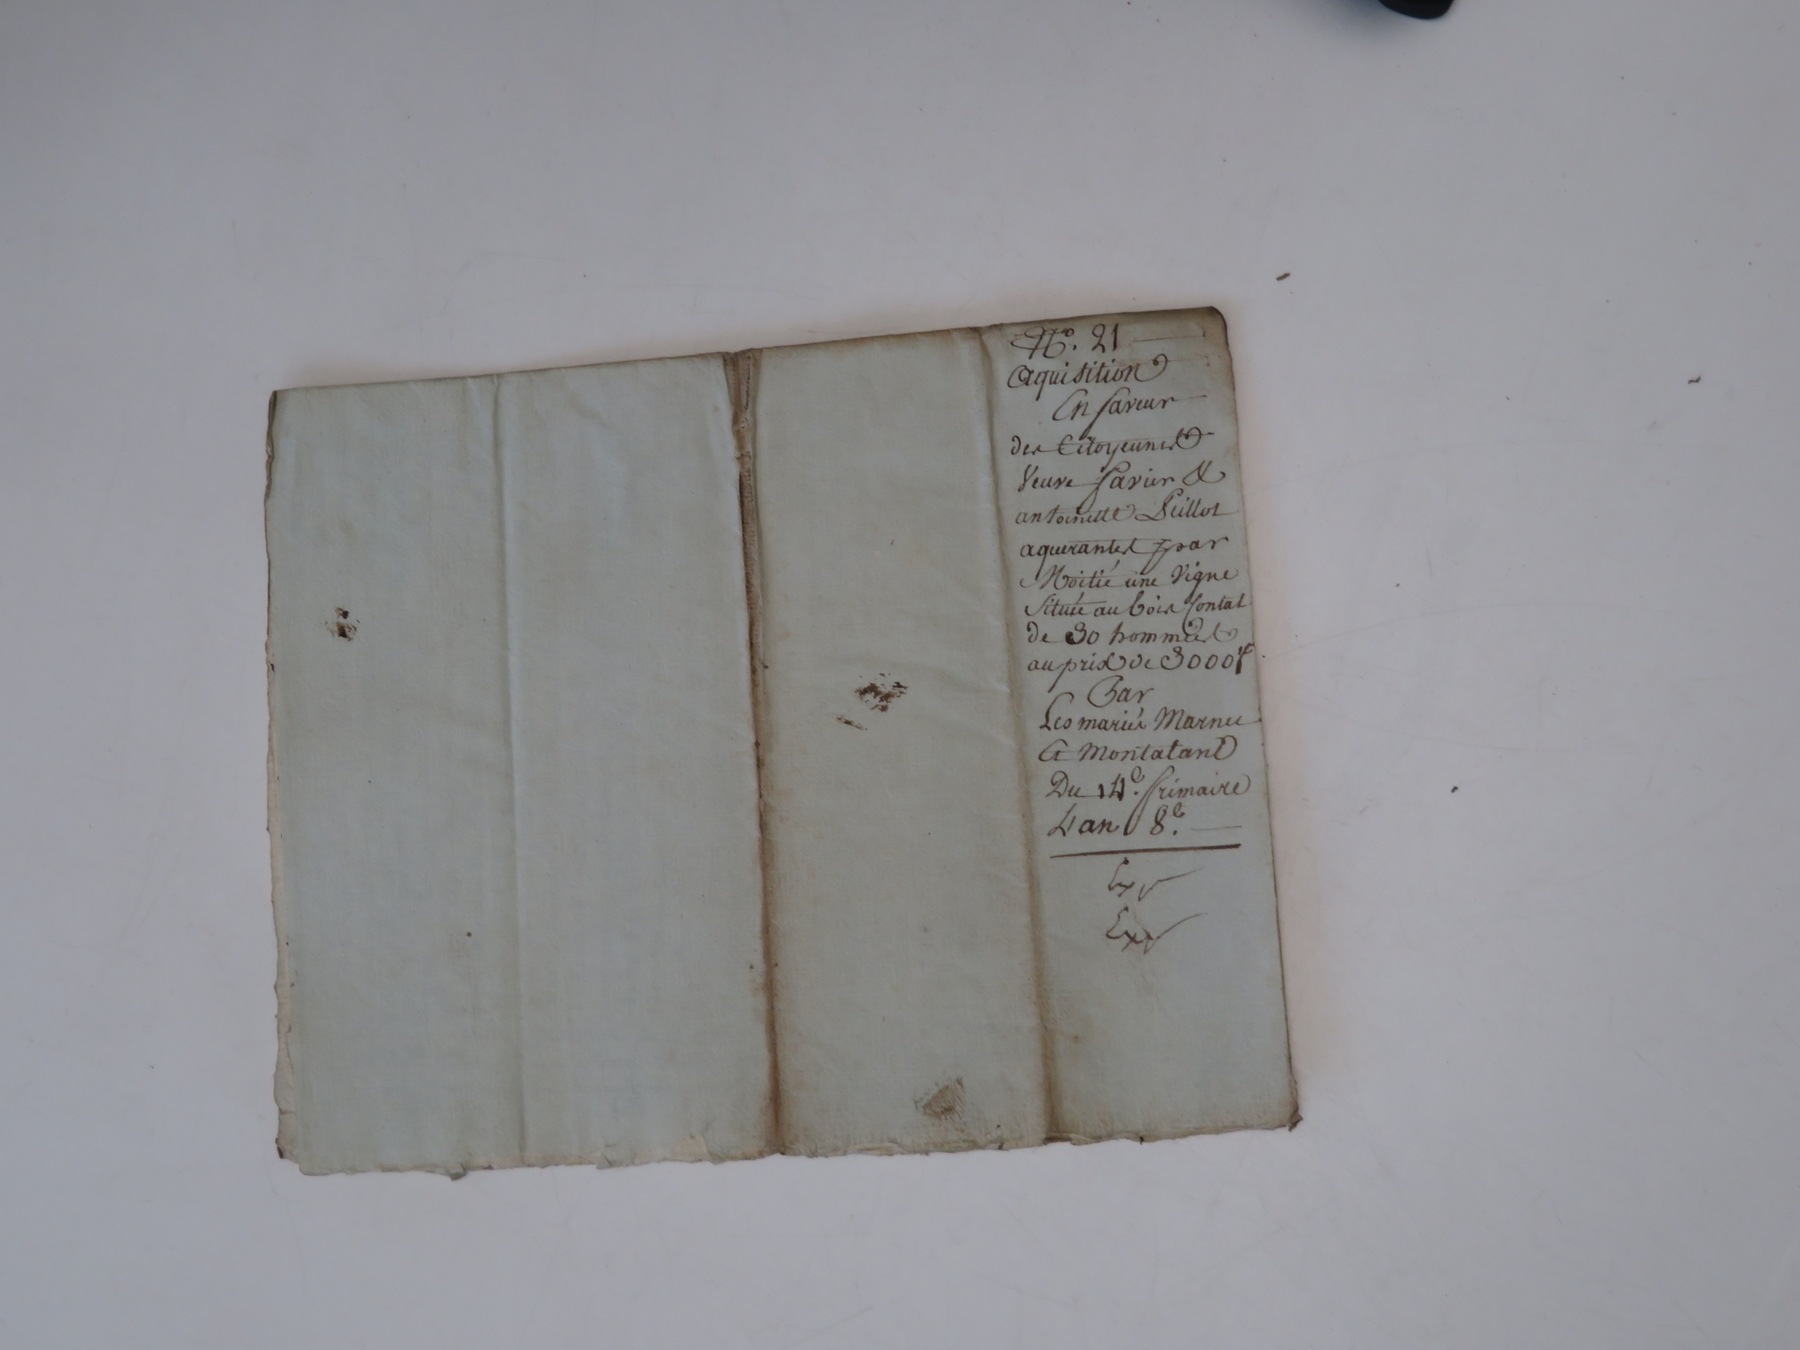 N.º 21
aquisition
En faveur
des Citoyennes
Veuve favier &
antoinette Peillot
aquerantes par
Moitié une Vigne
Située au bois Contal
de 30 hommées
au prix de 3000 f
Par
Les mariés Marnee
Et Montatant
Du 14.e frimaire
L'an 8.e